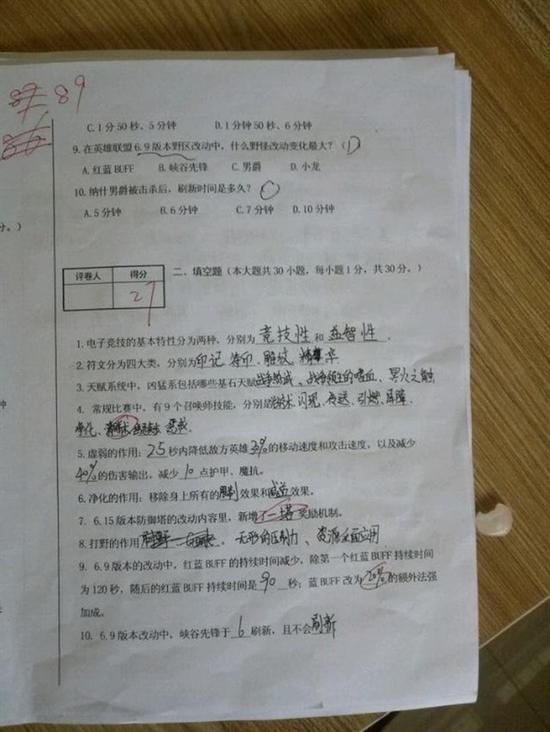 89
C.1分50秒、5分钟 D.1分钟50秒、6分钟
9.在英雄联盟6.9版本野区改动中，什么野怪改动变化最大？（D）
A.红蓝BUFF B.峡谷先锋 C.男爵 D.小龙
10.纳什男爵被击杀后，刷新时间是多久？
A.5分钟 B.6分钟 C.7分钟 D.10分钟
分。）
评卷人 得分
27
二、填空题（本大题共30小题，每小题1分，共30分。）
1.电子竞技的基本特性分为两种，分别为竞技性和益智性。
2.符文分为四大类，分别为印记、符印、雕纹、精华
3.天赋系统中，凶猛系包括哪些基石天赋战争热诚、战争领主的嗜血、冥火之触
4.常规比赛中，有9个召唤师技能，分别是治疗术、闪现、传送、引燃、屏障、
净化、惩戒
5.虚弱的作用：2.5秒内降低敌方英雄30%的移动速度和攻击速度，以及减少
40%的伤害输出，减少10点护甲、魔抗。
6.净化的作用：移除身上所有的限制效果和减益效果。
7.6.15版本防御塔的改动内容里，新增了一塔奖励机制。
8.打野的作用 无形的压制力、资源全面应用
9.6.9版本的改动中，红蓝BUFF的持续时间减少，除第一个红蓝BUFF持续时间
为120秒，随后的红蓝BUFF持续时间是90秒；蓝BUFF改为20%的额外法强
加成。
10.6.9版本改动中，峡谷先锋于6刷新，且不会刷新